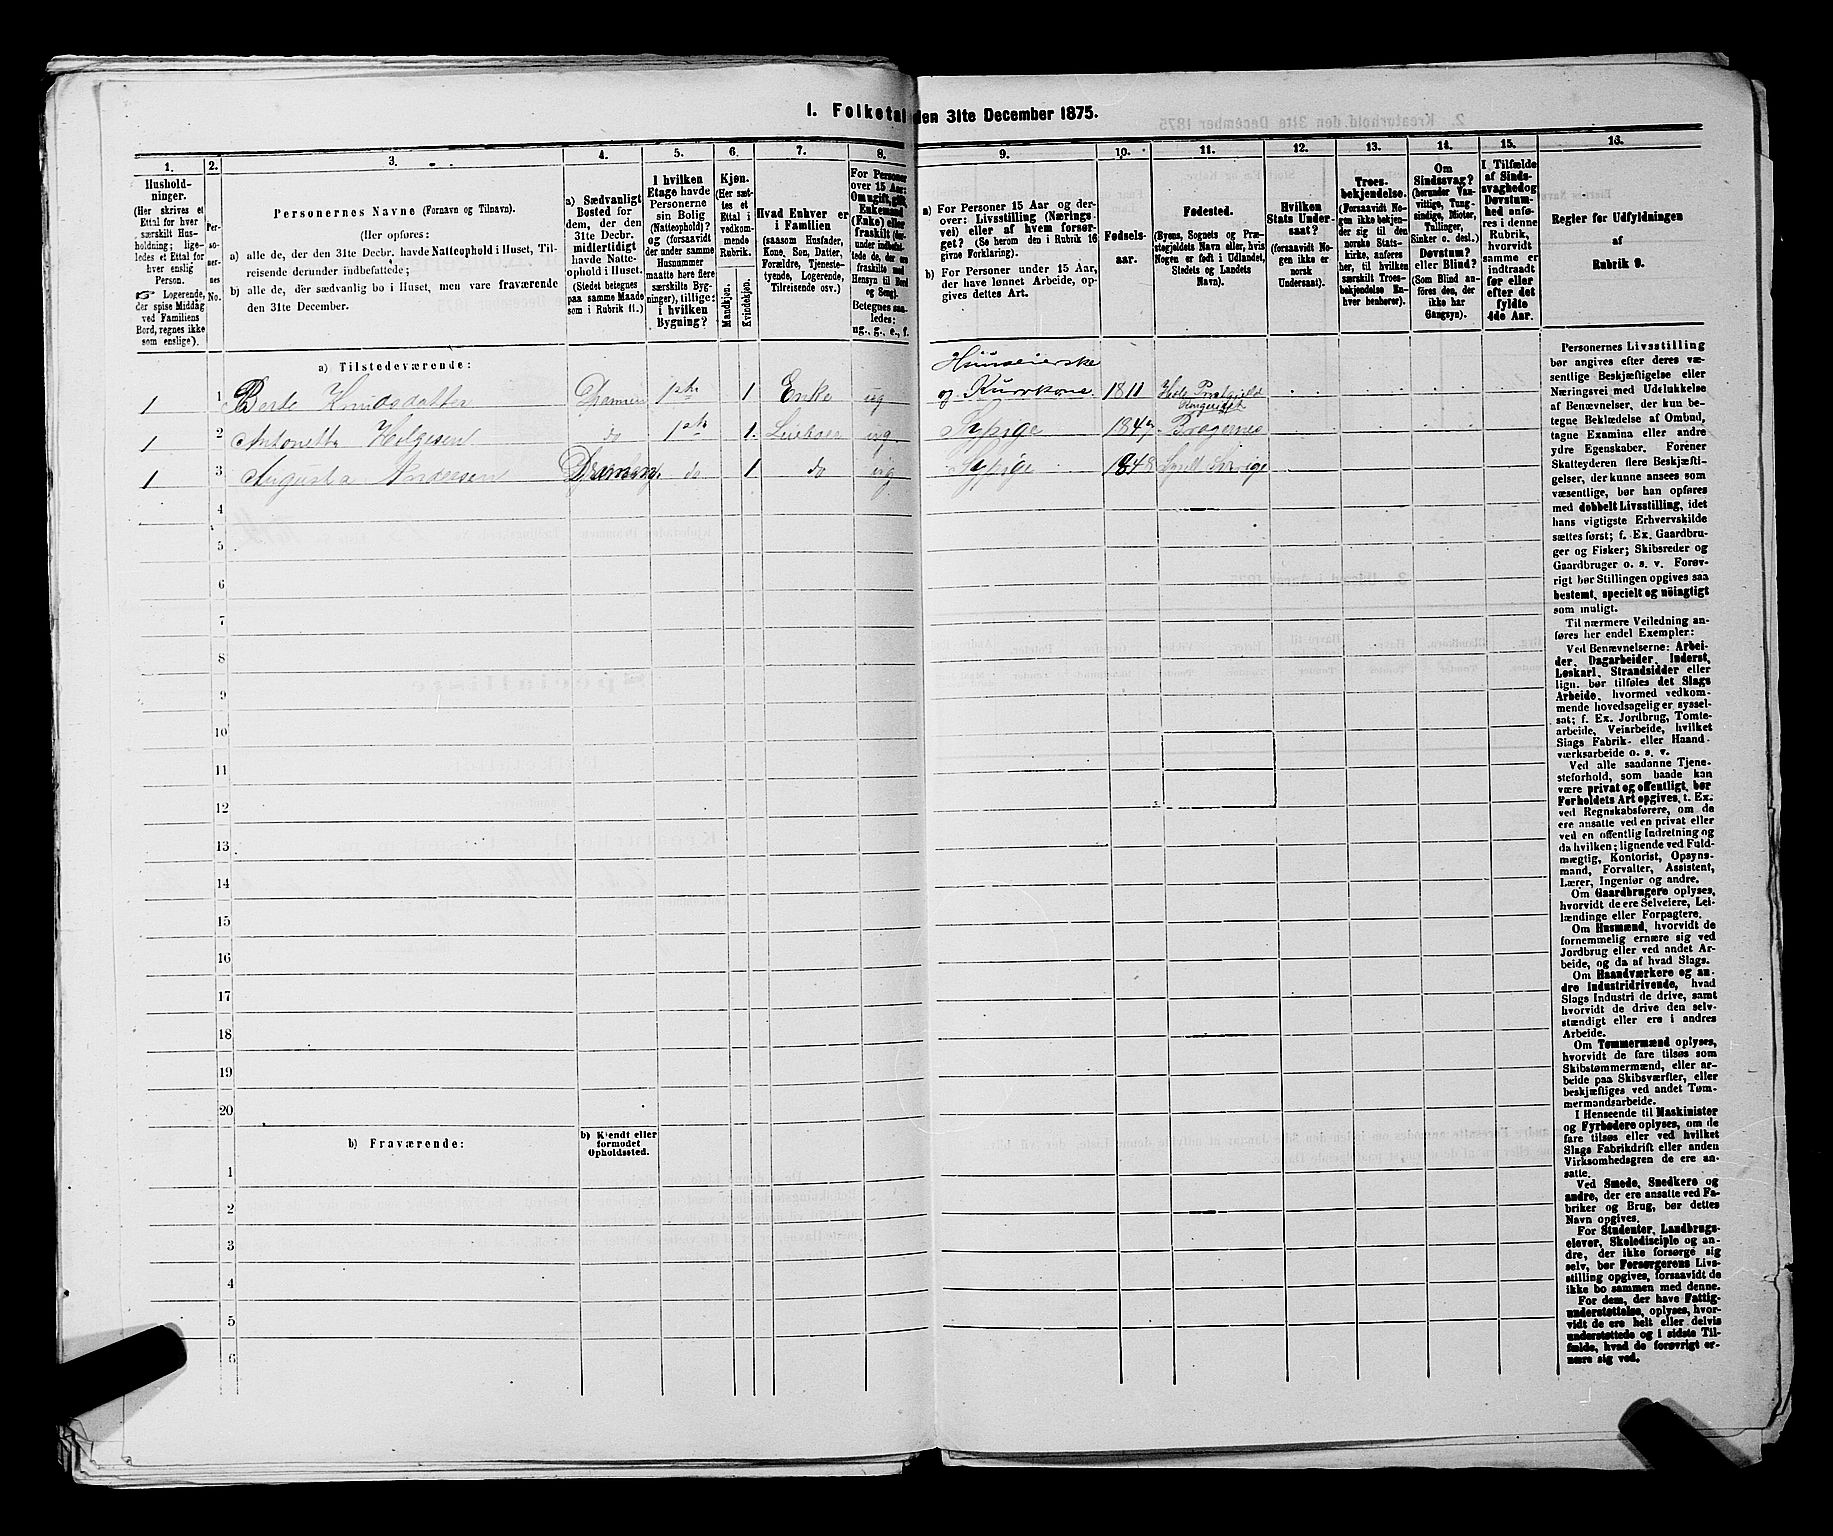 I. Folketal den 31te December 1875.
1. 2. 3. 4. 5. 6. 7. 8. 9. 10. 11. 12. 13. 14. 15. 16.
Hushold-
ninger.
(Her skrives et
Ettal for hver
særskilt Hus-
holdning; lige-
ledes et Ettal for
hver enslig
Person.
☞ Logerende,
der spise Middag
ved Familiens
Bord, regnes ikke
som enslige).
Per-
so-
ner-
nes
No.
Personernes Navne (Fornavn og Tilnavn).
(Her opføres:
a) alle de, der den 31te Decbr. havde Natteophold i Huset, Til-
reisende derunder indbefattede;
b) alle de, der sædvanlig bo i Huset, men vare fraværende
den 31te December.
a) Sædvanligt
Bosted for
dem, der den
31te Decbr.
midlertidigt
havde Natte-
ophold i Huset.
(Stedet betegnes
paa samme Maade
som i Rubrik 11.)
I hvilken
Etage havde
Personerne
sin Bolig
(Natteophold)?
og (forsaavidt
der under samme
Husnummer
maatte høre flere
særskilte Byg-
ninger), tillige:
i hvilken
Bygning?
Kjøn.
(Her sæt-
tes et
Ettal i
vedkom-
mende
Rubrik.
Mandkjøn.
Kvindekjøn.
Hvad Enhver er
i Familien
(saasom Husfader,
Kone, Søn, Datter,
Forældre, Tjeneste-
tyende, Logerende,
Tilreisende osv.)
For Personer
over 15 Aar:
Om ugift, gift,
Enkemand
(Enke) eller
fraskilt (der-
under indbefat-
tede de, der ere
fraskilte med
Hensyn til Bord
og Seng).
Betegnes saa-
ledes:
ug., g., e., f.
a) For Personer 15 Aar og der-
over: Livsstilling (Nærings-
vei) eller af hvem forsør-
get? (Se herom den i Rubrik 16
givne Forklaring).
b) For Personer under 15 Aar,
der have lønnet Arbeide, op-
gives dettes Art.
Fødsels-
aar.
Fødested.
(Byens, Sognets og Præ-
stegjeldets Navn eller, hvis
Nogen er født i Udlandet,
Stedets og Landets
Navn).
Hvilken
Stats Under-
saat?
(forsaavidt No-
gen ikke er
norsk
Undersaat).
Troes-
bekjendelse.
(Forsaavidt No-
gen ikke bekjen-
der sig til den
norske Stats-
kirke, anføres
her, til hvilken
særskilt Troes-
bekjendelse En-
hver henhører).
Om
Sindssvag?
(herunder Van-
vittige, Tung-
sindige, Idioter,
Tullinger,
Sinker o. desl.)
Døvstum?
eller Blind?
(Som Blind an-
føres den, der
ikke har
Gangsyn).
I Tilfælde
af Sinds-
svaghed og
Døvstum-
hed anfø-
res i denne
Rubrik,
hvorvidt
samme er
indtraadt
før eller
efter det
fyldte
4de Aar.
Regler for Udfyldningen
af
Rubrik 9.
a) Tilstedeværende:
Huuseierske
1 1 Berte Knudsdatter Dramen 1ste 1 Enke ug og Kurvkone 1811 Hole Prstgield
Ringeriget
1 2 Antonette Helgesen do 1ste 1. Leieboer ug Sypige 1847 Bragernes
1 3 Augusta Andersen do 1 do ug Sypige 1848
4
5
6
7
8
9
10
11
12
13
14
15
16
17
18
19
20
b) Fraværende:
b) Kjendt eller
formodet
Opholdssted.
1
2
3
4
5
6
Personernes Livsstilling
bør angives efter deres væ-
sentlige Beskjæftigelse eller
Næringsvei med Udelukkelse
af Benævnelser, der kun be-
tegne Beklædelse af Ombud,
tagne Examina eller andre
ydre Egenskaber. Forener
Skatteyderen flere Beskjæfti-
gelser, der kunne ansees som
væsentlige, bør han opføres
med dobbelt Livsstilling, idet
hans vigtigste Erhvervskilde
sættes først; f. Ex. Gaardbru-
ger og Fisker; Skibsreder og
Gaardbruger o. s. v. Forøv-
rigt bør Stillingen opgives saa
bestemt, specielt og nöiagtigt
som muligt.
Til nærmere Veiledning an-
føres her endel Exempler:
Ved Benævnelserne: Arbei-
der, Dagarbeider, Inderst,
Løskarl, Strandsidder eller
lign. bør tilføies det Slags
Arbeide, hvormed vedkom-
mende hovedsagelig er syssel-
sat; f. Ex. Jordbrug, Tomte-
arbeide, Veiarbeide, hvilket
Slags Fabrik- eller Haand-
værksarbeide o. s. v.
Ved alle saadanne Tjene-
steforhold, som baade kan
være privat og offentligt, bør
Forholdets Art opgives, t. Ex.
ved Regnskabsførere, om de
ere ansatte ved en privat eller
ved en offentlig Indretning og
da hvilken; lignende ved Fuld-
mægtig, Kontorist, Opsyns-
mand, Forvalter, Assistent,
Lærer, Ingeniør og andre.
Om Gaardbrugere oplyses,
hvorvidt de ere Selveiere, Lei-
lændinge eller Forpagtere.
Om Husmænd, hvorvidt de
fornemmelig ernære sig ved
Jordbrug eller ved andet Ar-
beide, og da af hvad Slags.
Om Haandværkere og an-
dre Industridrivende, hvad
Slags Industri de drive, samt
hvorvidt de drive den selv-
stændigt eller ere i andres
Arbeide.
Om Tømmermænd oplyses,
hvorvidt de fare tilsøs som
Skibstømmermænd, eller ar-
beide paa Skibsværfter, eller
beskjæftiges ved andet Tøm-
mermandsarbeide.
I Henseende til Maskinister
og Fyrbødere oplyses, om de
fare tilsøs eller ved hvilket
Slags Fabrikdrift eller anden
Virksomhedsgren de ere an-
satte.
Ved Smede, Snedkere og
andre, der ere ansatte ved Fa-
briker og Brug, bør dettes
Navn opgives.
For Studenter, Landbrugs-
elever, Skoledisciple og an-
dre, der ikke forsørge sig
selv, bør Forsørgerens Livs-
stilling opgives, forsaavidt de
ikke bo sammen med denne.
For dem, der have Fattig-
understøttelse, oplyses, hvor-
vidt de ere helt eller delvis
understøttede og i sidste Til-
fælde, hvad de forøvrigt er-
nære sig ved.